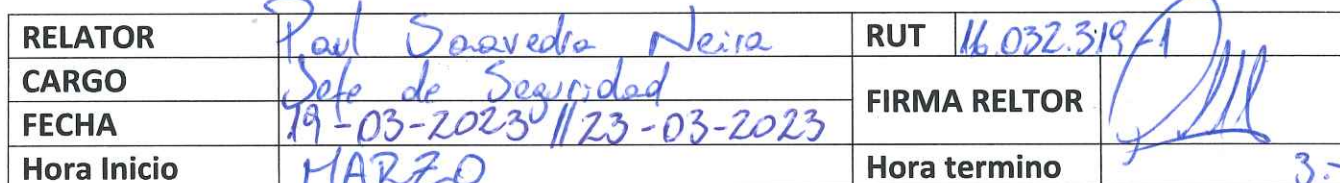 RELATOR Paul Saavedra Neira RUT 16.032.319-1
CARGO Jefe de Seguridad
FIRMA RELTOR
FECHA 19-03-2023 // 23-03-2023
Hora Inicio MARZO Hora termino 3.-